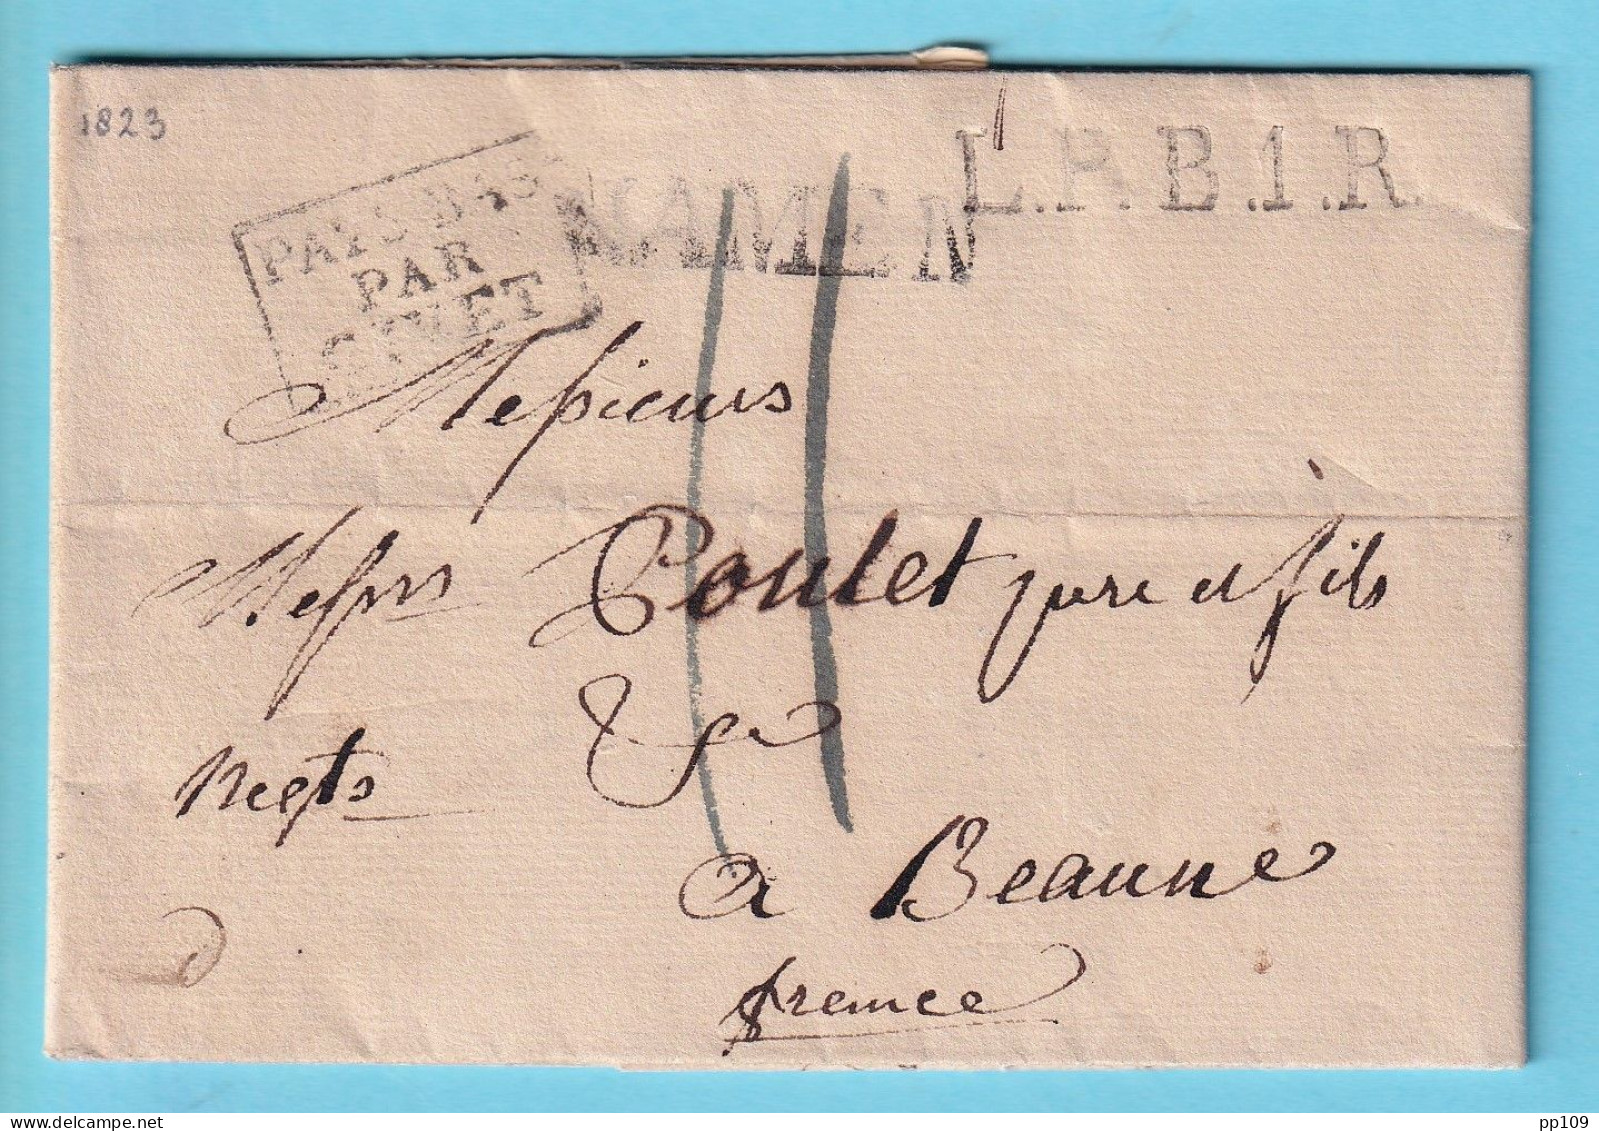 1823
L.P.B.1.R.
NAMEN
PAYS BAS
PAR
GIVET
11
Messieurs
Messrs Poulet père et fils
&
Negts
à Beaune
france
pp109